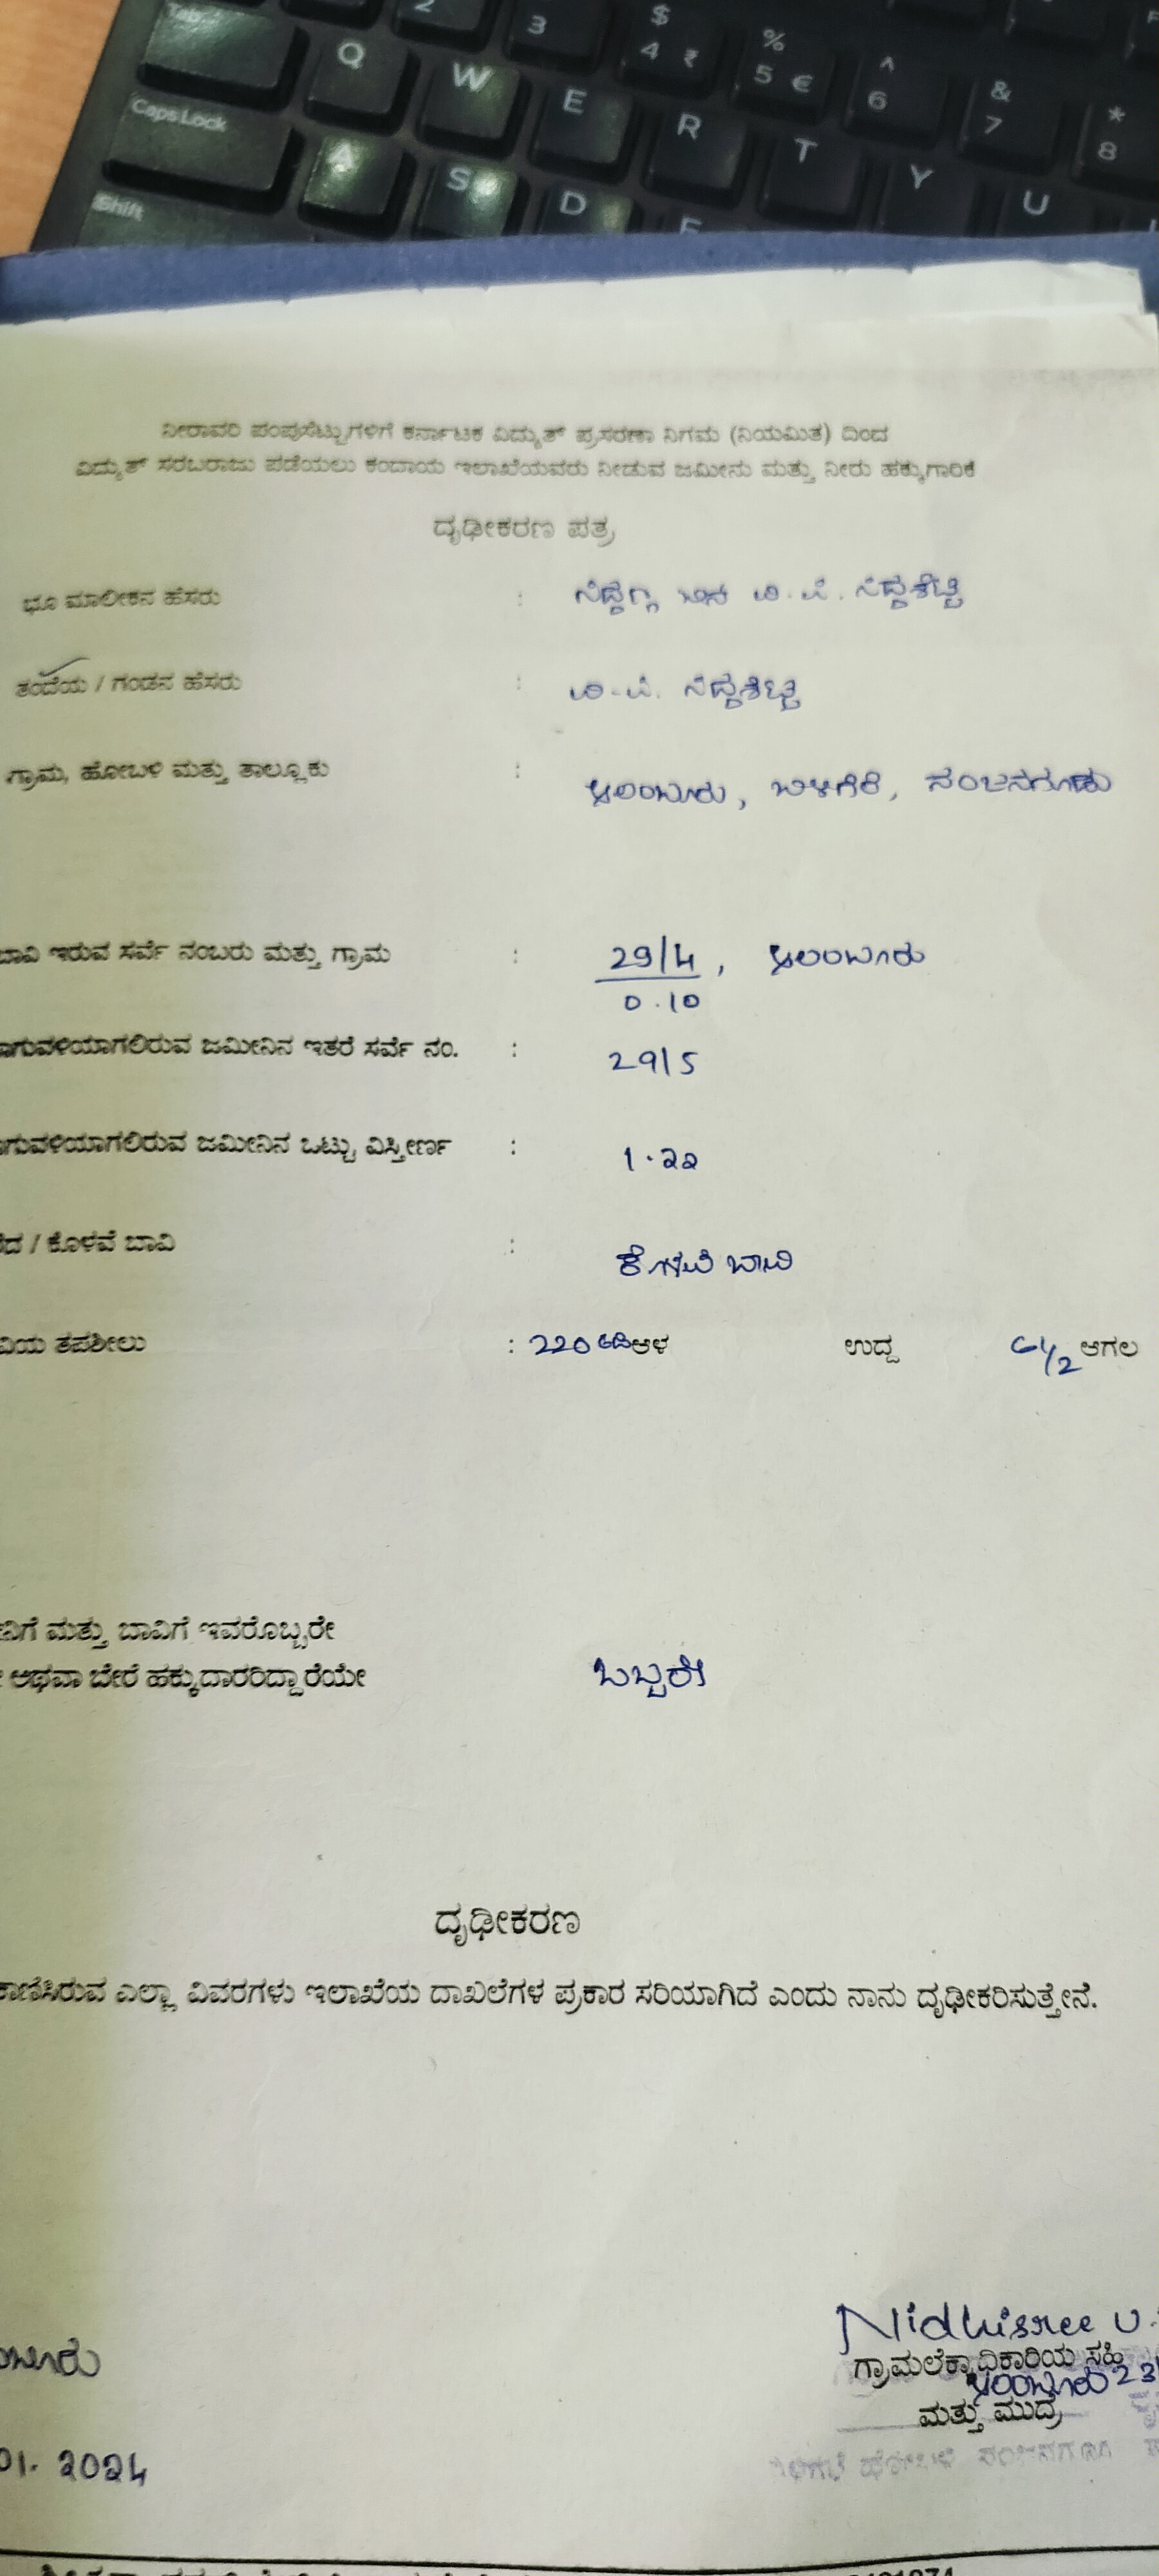 Tab
2
3
$
4 ₹
%
5 €
^
6
&
7
*
8
Q W E R T Y U
Caps Lock
A S D F
Shift
ನೀರಾವರಿ ಪಂಪುಸೆಟ್ಟುಗಳಿಗೆ ಕರ್ನಾಟಕ ವಿದ್ಯುತ್ ಪ್ರಸರಣಾ ನಿಗಮ (ನಿಯಮಿತ) ದಿಂದ
ವಿದ್ಯುತ್ ಸರಬರಾಜು ಪಡೆಯಲು ಕಂದಾಯ ಇಲಾಖೆಯವರು ನೀಡುವ ಜಮೀನು ಮತ್ತು ನೀರು ಹಕ್ಕುಗಾರಿಕೆ
ದೃಢೀಕರಣ ಪತ್ರ
ಭೂ ಮಾಲೀಕನ ಹೆಸರು :
ತಂದೆಯ / ಗಂಡನ ಹೆಸರು :
ಗ್ರಾಮ, ಹೋಬಳಿ ಮತ್ತು ತಾಲ್ಲೂಕು : ಬಿಳಿಗೆರೆ, ನಂಜನಗೂಡು
ಬಾವಿ ಇರುವ ಸರ್ವೆ ನಂಬರು ಮತ್ತು ಗ್ರಾಮ : 29/4,
0.10
ಾಗುವಳಿಯಾಗಲಿರುವ ಜಮೀನಿನ ಇತರೆ ಸರ್ವೆ ನಂ. : 29/5
ಾಗುವಳಿಯಾಗಲಿರುವ ಜಮೀನಿನ ಒಟ್ಟು ವಿಸ್ತೀರ್ಣ : 1.22
/ ಕೊಳವೆ ಬಾವಿ : ಕೊಳವೆ ಬಾವಿ
ವಿಯ ತಪಶೀಲು : 220 ಅಡಿ ಆಳ ಉದ್ದ 6½ ಅಗಲ
ನಿಗೆ ಮತ್ತು ಬಾವಿಗೆ ಇವರೊಬ್ಬರೇ
ಅಥವಾ ಬೇರೆ ಹಕ್ಕುದಾರರಿದ್ದಾರೆಯೇ ಒಬ್ಬರೇ
ದೃಢೀಕರಣ
ಕಾಣಿಸಿರುವ ಎಲ್ಲಾ ವಿವರಗಳು ಇಲಾಖೆಯ ದಾಖಲೆಗಳ ಪ್ರಕಾರ ಸರಿಯಾಗಿದೆ ಎಂದು ನಾನು ದೃಢೀಕರಿಸುತ್ತೇನೆ.
Nidhisree U.
ಗ್ರಾಮಲೆಕ್ಕಾಧಿಕಾರಿಯ ಸಹಿ
ಮತ್ತು ಮುದ್ರೆ
01. 2024